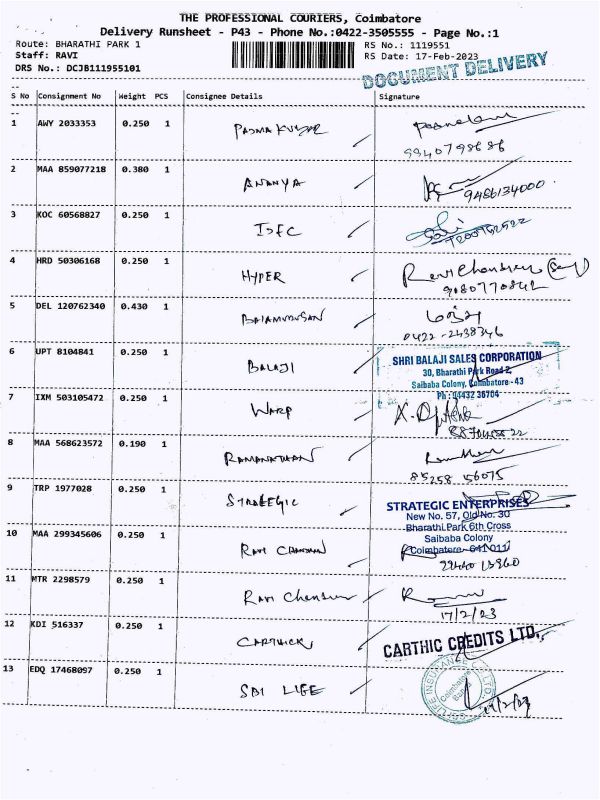 THE PROFESSIONAL COURIERS, Coimbatore
Delivery Runsheet - P43 - Phone No.:0422-3505555 - Page No.:1
Route: BHARATHI PARK 1 RS No.: 1119551
Staff: RAVI RS Date: 17-Feb-2023
DRS No.: DCJB111955101
DOCUMENT DELIVERY
S No Consignment No Weight PCS Consignee Details Signature
1 AWY 2033353 0.250 1 PADMA KUMAR
9940798686
2 MAA 859077218 0.380 1 ANANYA
9486134000
3 KOC 60568827 0.250 1 ISFC
4 HRD 50306168 0.250 1 HYPER Ravi Chandran
9080770842
5 DEL 120762340 0.430 1 BALAMURUGAN
0422-2438346
6 UPT 8104841 0.250 1 BALAJI
SHRI BALAJI SALES CORPORATION
30, Bharathi Park Road 2,
Saibaba Colony, Coimbatore - 43
7 IXM 503105472 0.250 1 WARP
8 MAA 568623572 0.190 1 RAMANATHAN
85258 56075
9 TRP 1977028 0.250 1 STRATEGIC
STRATEGIC ENTERPRISES
New No. 57, Old No. 30
Bharathi Park 6th Cross
Saibaba Colony
Coimbatore - 641 011
10 MAA 299345606 0.250 1 RAVI CHANDRAN
11 MTR 2298579 0.250 1 Ravi Chandran
17/2/23
12 KDI 516337 0.250 1 CARTHICK
CARTHIC CREDITS LTD.,
13 EDQ 17468097 0.250 1 SBI LIFE